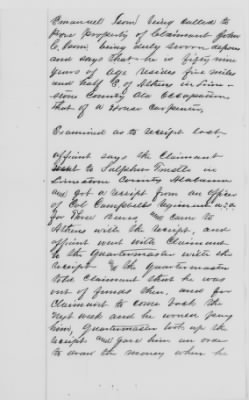 Emanuel Isom being called to
Prove Property of Claimant John
C. Isom, being duly sworn deposes
and says that he is fifty nine
years of age resides five miles
and half E. of Athens in Lime-
stone County Ala Occupation
that of a House carpenter,
Examined as to receipt lost
affiant says the Claimant
went to Sulphur Trestle in
Limestone County Alabama
and Got a receipt from an officer
of Col Campbells Regiment
for Three Beeves, and came to
Athens with the receipt, and
affiant went with Claimant
to the Quartermaster with the
receipt and the Quartermaster
told Claimant that he was
out of funds then, and for
Claimant to come back the
next week and he would pay
him, Quartermaster took up the
receipt and gave him an order
to draw the money when he